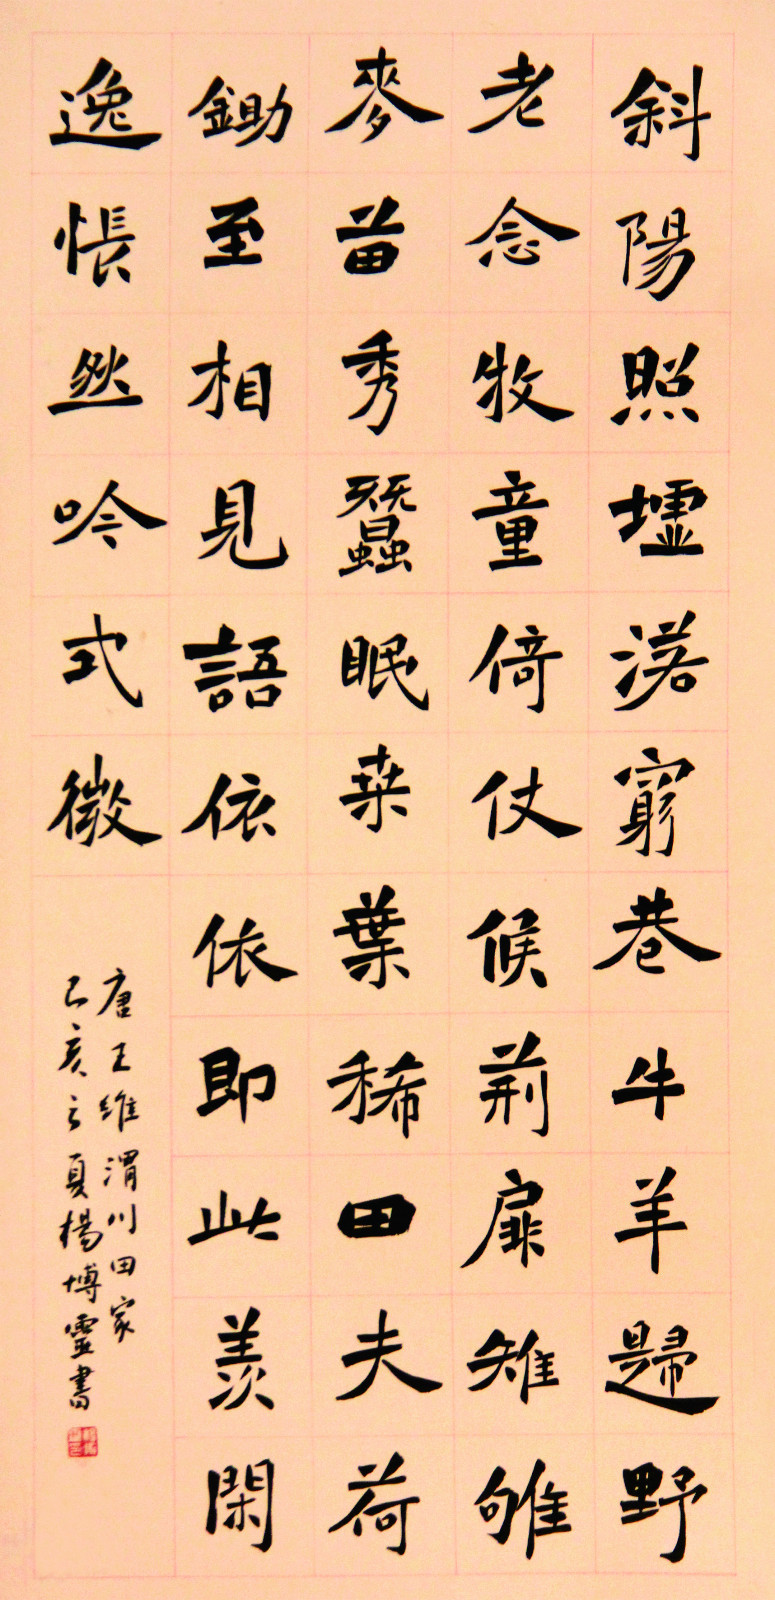 斜陽照墟落窮巷牛羊歸野
老念牧童倚仗候荊扉雉雊
麥苗秀蠶眠桒葉稀田夫荷
鋤至相見語依依即此羨閑
逸悵然吟式微
唐王維渭川田家
己亥之夏楊博靈書